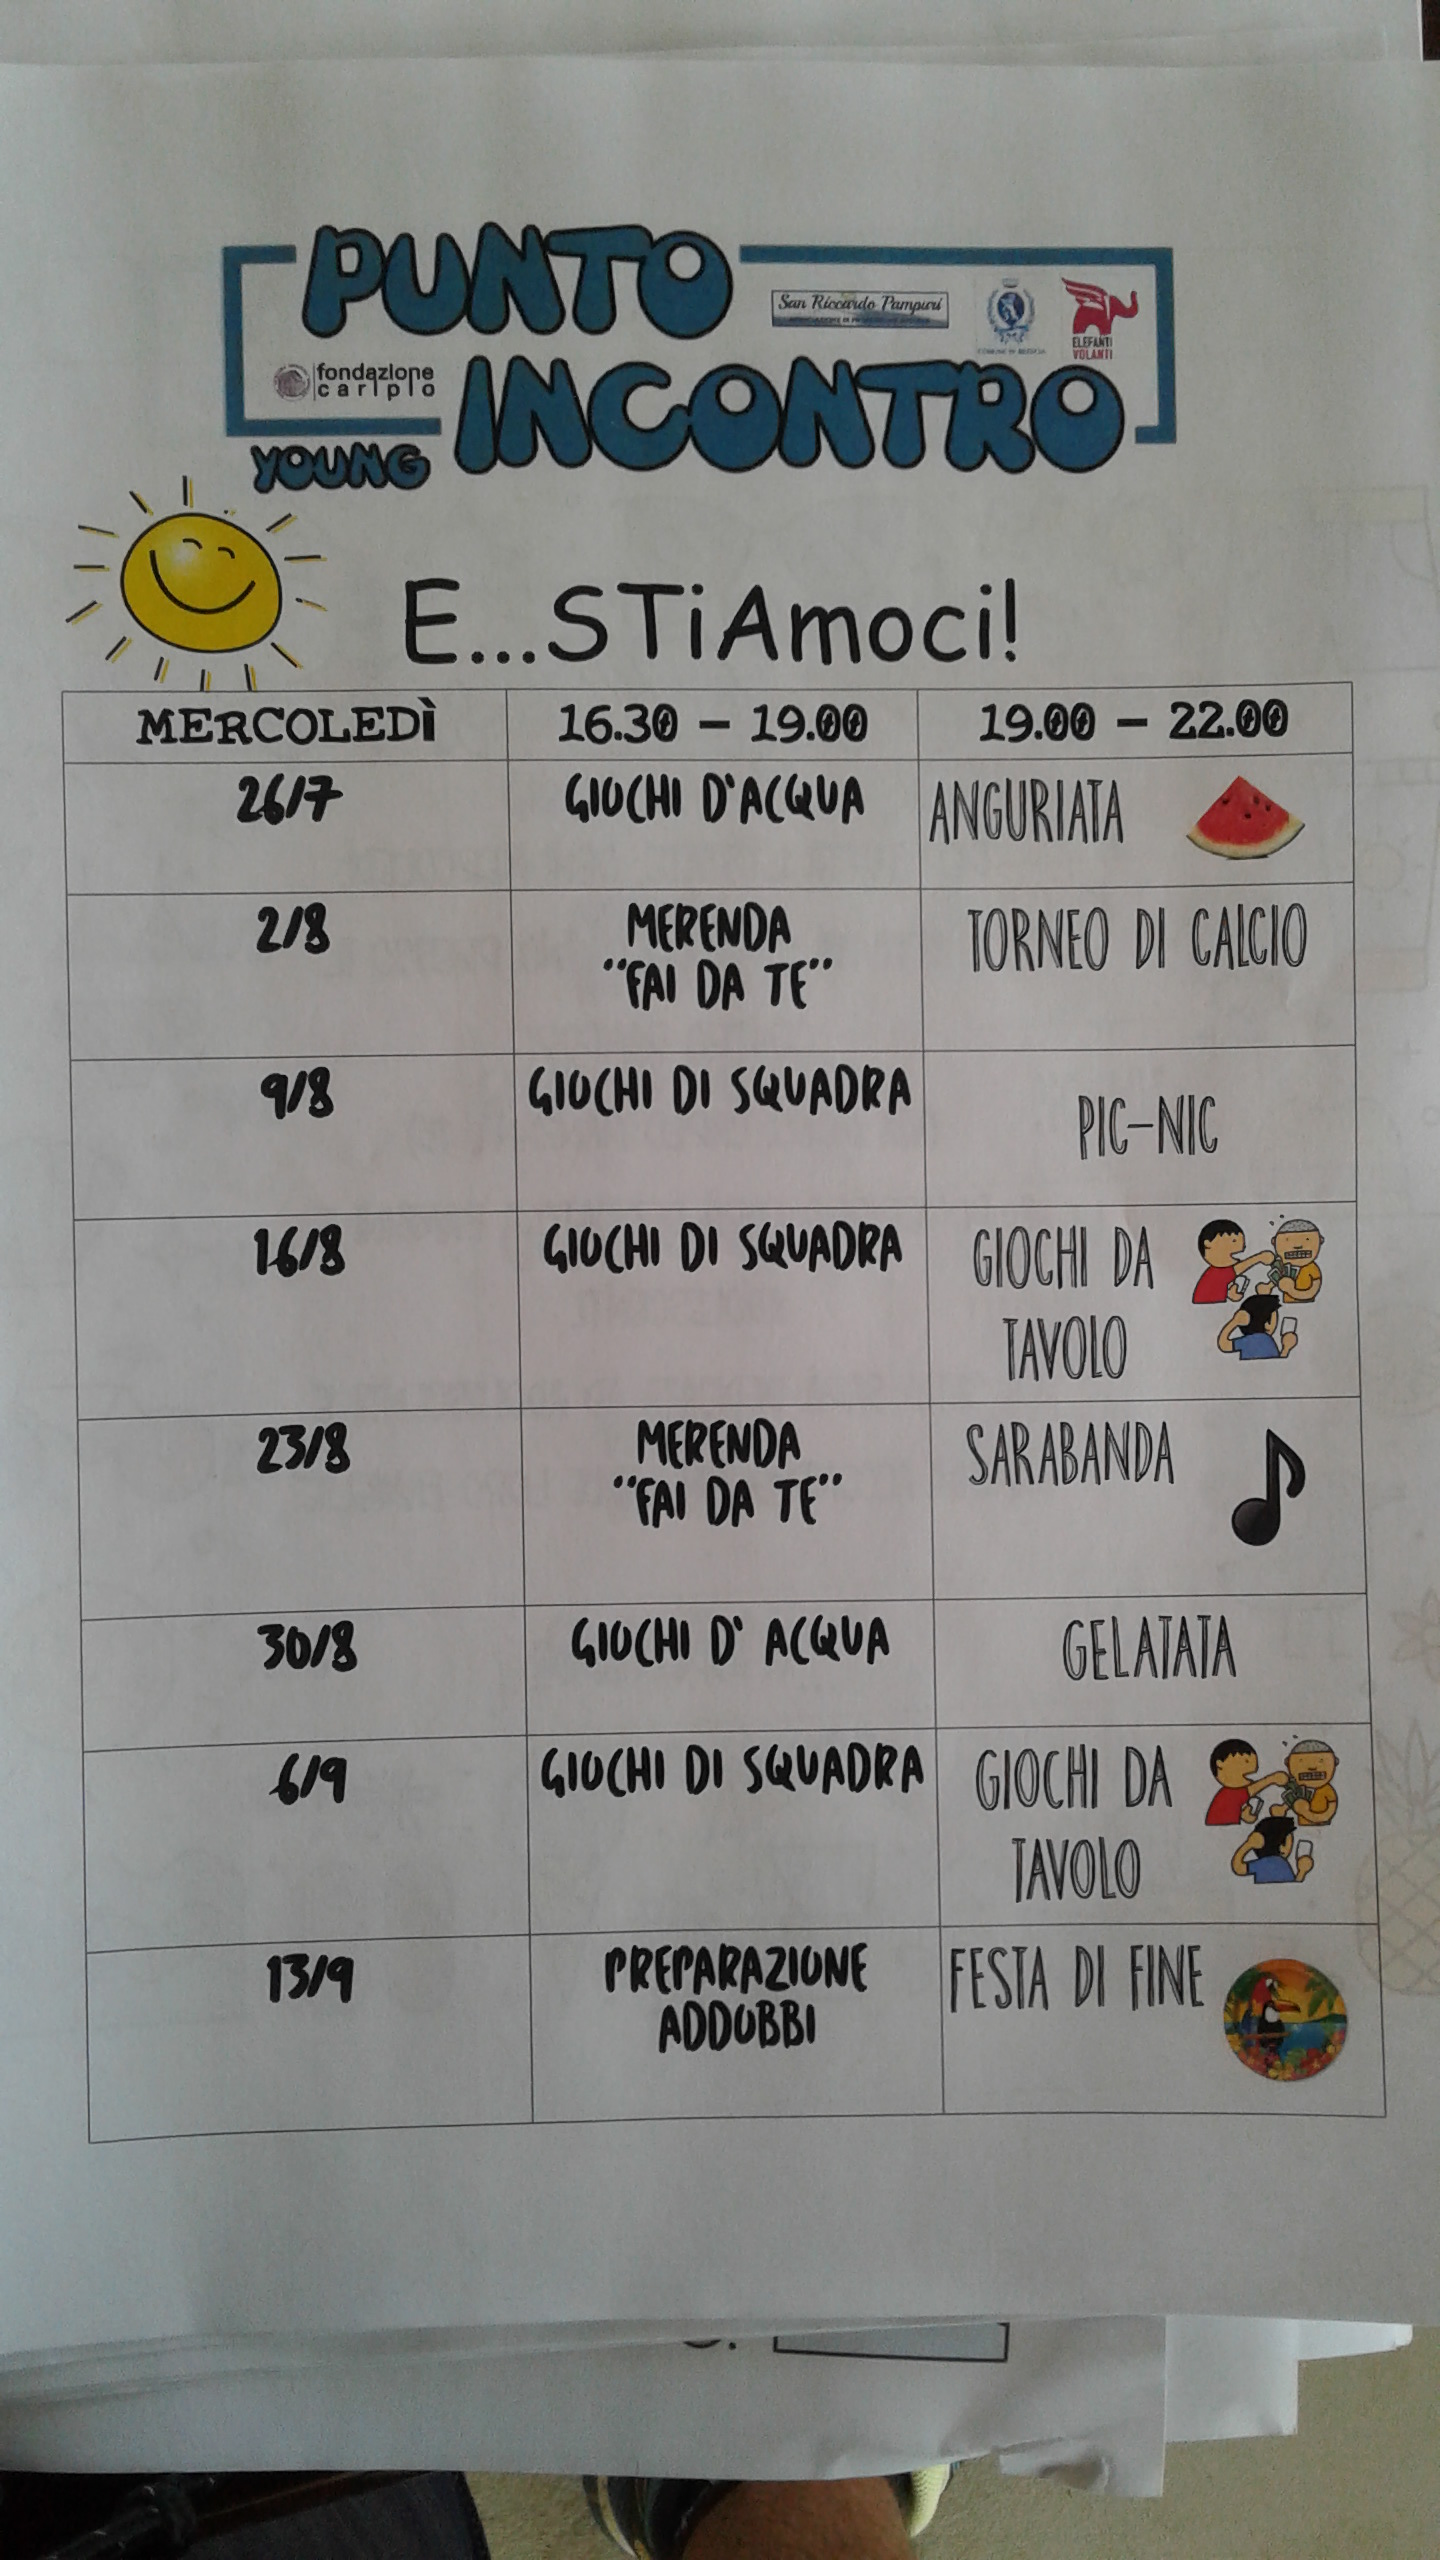 PUNTO
San Riccardo Pampuri
ELEFANTI
VOLANTI
fondazione
cariplo
INCONTRO
YOUNG
E...STiAmoci!
MERCOLEDÌ 16.30 – 19.00 19.00 – 22.00
26/7 GIOCHI D'ACQUA ANGURIATA
2/8 MERENDA TORNEO DI CALCIO
"FAI DA TE"
9/8 GIOCHI DI SQUADRA PIC-NIC
16/8 GIOCHI DI SQUADRA GIOCHI DA
TAVOLO
23/8 MERENDA SARABANDA
"FAI DA TE"
30/8 GIOCHI D' ACQUA GELATATA
6/9 GIOCHI DI SQUADRA GIOCHI DA
TAVOLO
13/9 PREPARAZIONE FESTA DI FINE
ADDOBBI